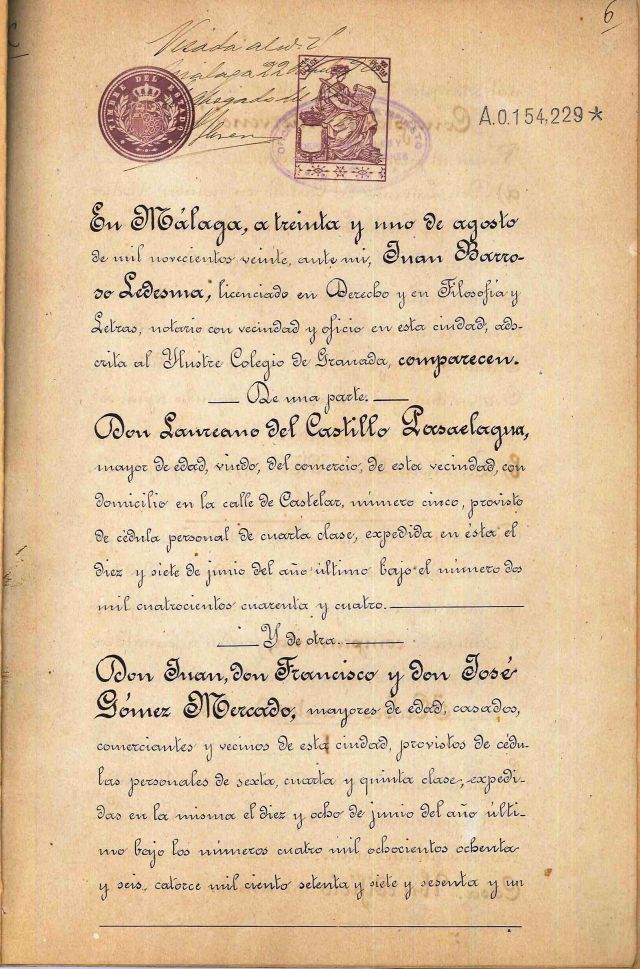 6
Visada al
Málaga 22
Abogado
TIMBRE DEL ESTADO
A.0.154,229*
En Málaga, a treinta y uno de agosto
de mil novecientos veinte, ante mi, Juan Barro-
so Ledesma, licenciado en Derecho y en Filosofía y
Letras, notario con vecindad y oficio en esta ciudad, ads-
crita al Ylustre Colegio de Granada, comparecen.
De una parte.
Don Laureano del Castillo Pasaelagua,
mayor de edad, viudo, del comercio, de esta vecindad, con
domicilio en la calle de Castelar, número cinco, provisto
de cédula personal de cuarta clase, expedida en ésta el
diez y siete de junio del año último bajo el número dos
mil cuatrocientos cuarenta y cuatro.
Y de otra.
Don Juan, don Francisco y don José
Gómez Mercado, mayores de edad, casados,
comerciantes y vecinos de esta ciudad, provistos de cédu-
las personales de sexta, cuarta y quinta clase, expedi-
das en la misma el diez y ocho de junio del año últi-
mo bajo los números cuatro mil ochocientos ochenta
y seis, catorce mil ciento setenta y siete y sesenta y un